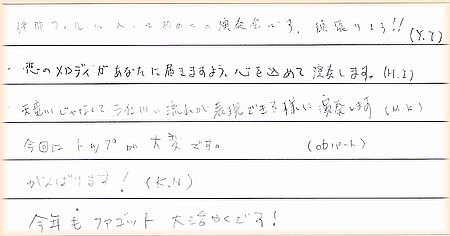 伊那フィルに入って初めての演奏会です。頑張りまう!! (Y.T)
・恋のメロディがあなたに届きますよう、心を込めて演奏します。(H.I)
天竜川じゃなくてライン川の流れが表現できる様に演奏します (M.K)
今回はトップが大変です。 (obパート)
がんばります! (K.N)
今年もファゴット大活やくです!